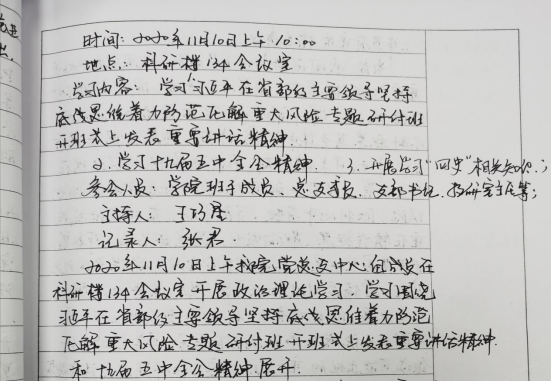 时间：2020年11月10日上午10:00
地点：科研楼134会议室
学习内容：1、学习习近平在省部级主要领导坚持
底线思维着力防范化解重大风险专题研讨班
开班式上发表重要讲话精神
2、学习十九届五中全会精神. 3、开展学习“四史”相关知识；
参会人员：学院班子成员、总支委员、支部书记、教研室主任等；
主持人：王巧
记录人：张君
2020年11月10日上午我院党总支中心组成员在
科研楼134会议室开展政治理论学习，学习围绕
习近平在省部级主要领导坚持底线思维着力防范
化解重大风险专题研讨班开班式上发表重要讲话精神
和十九届五中全会精神展开.